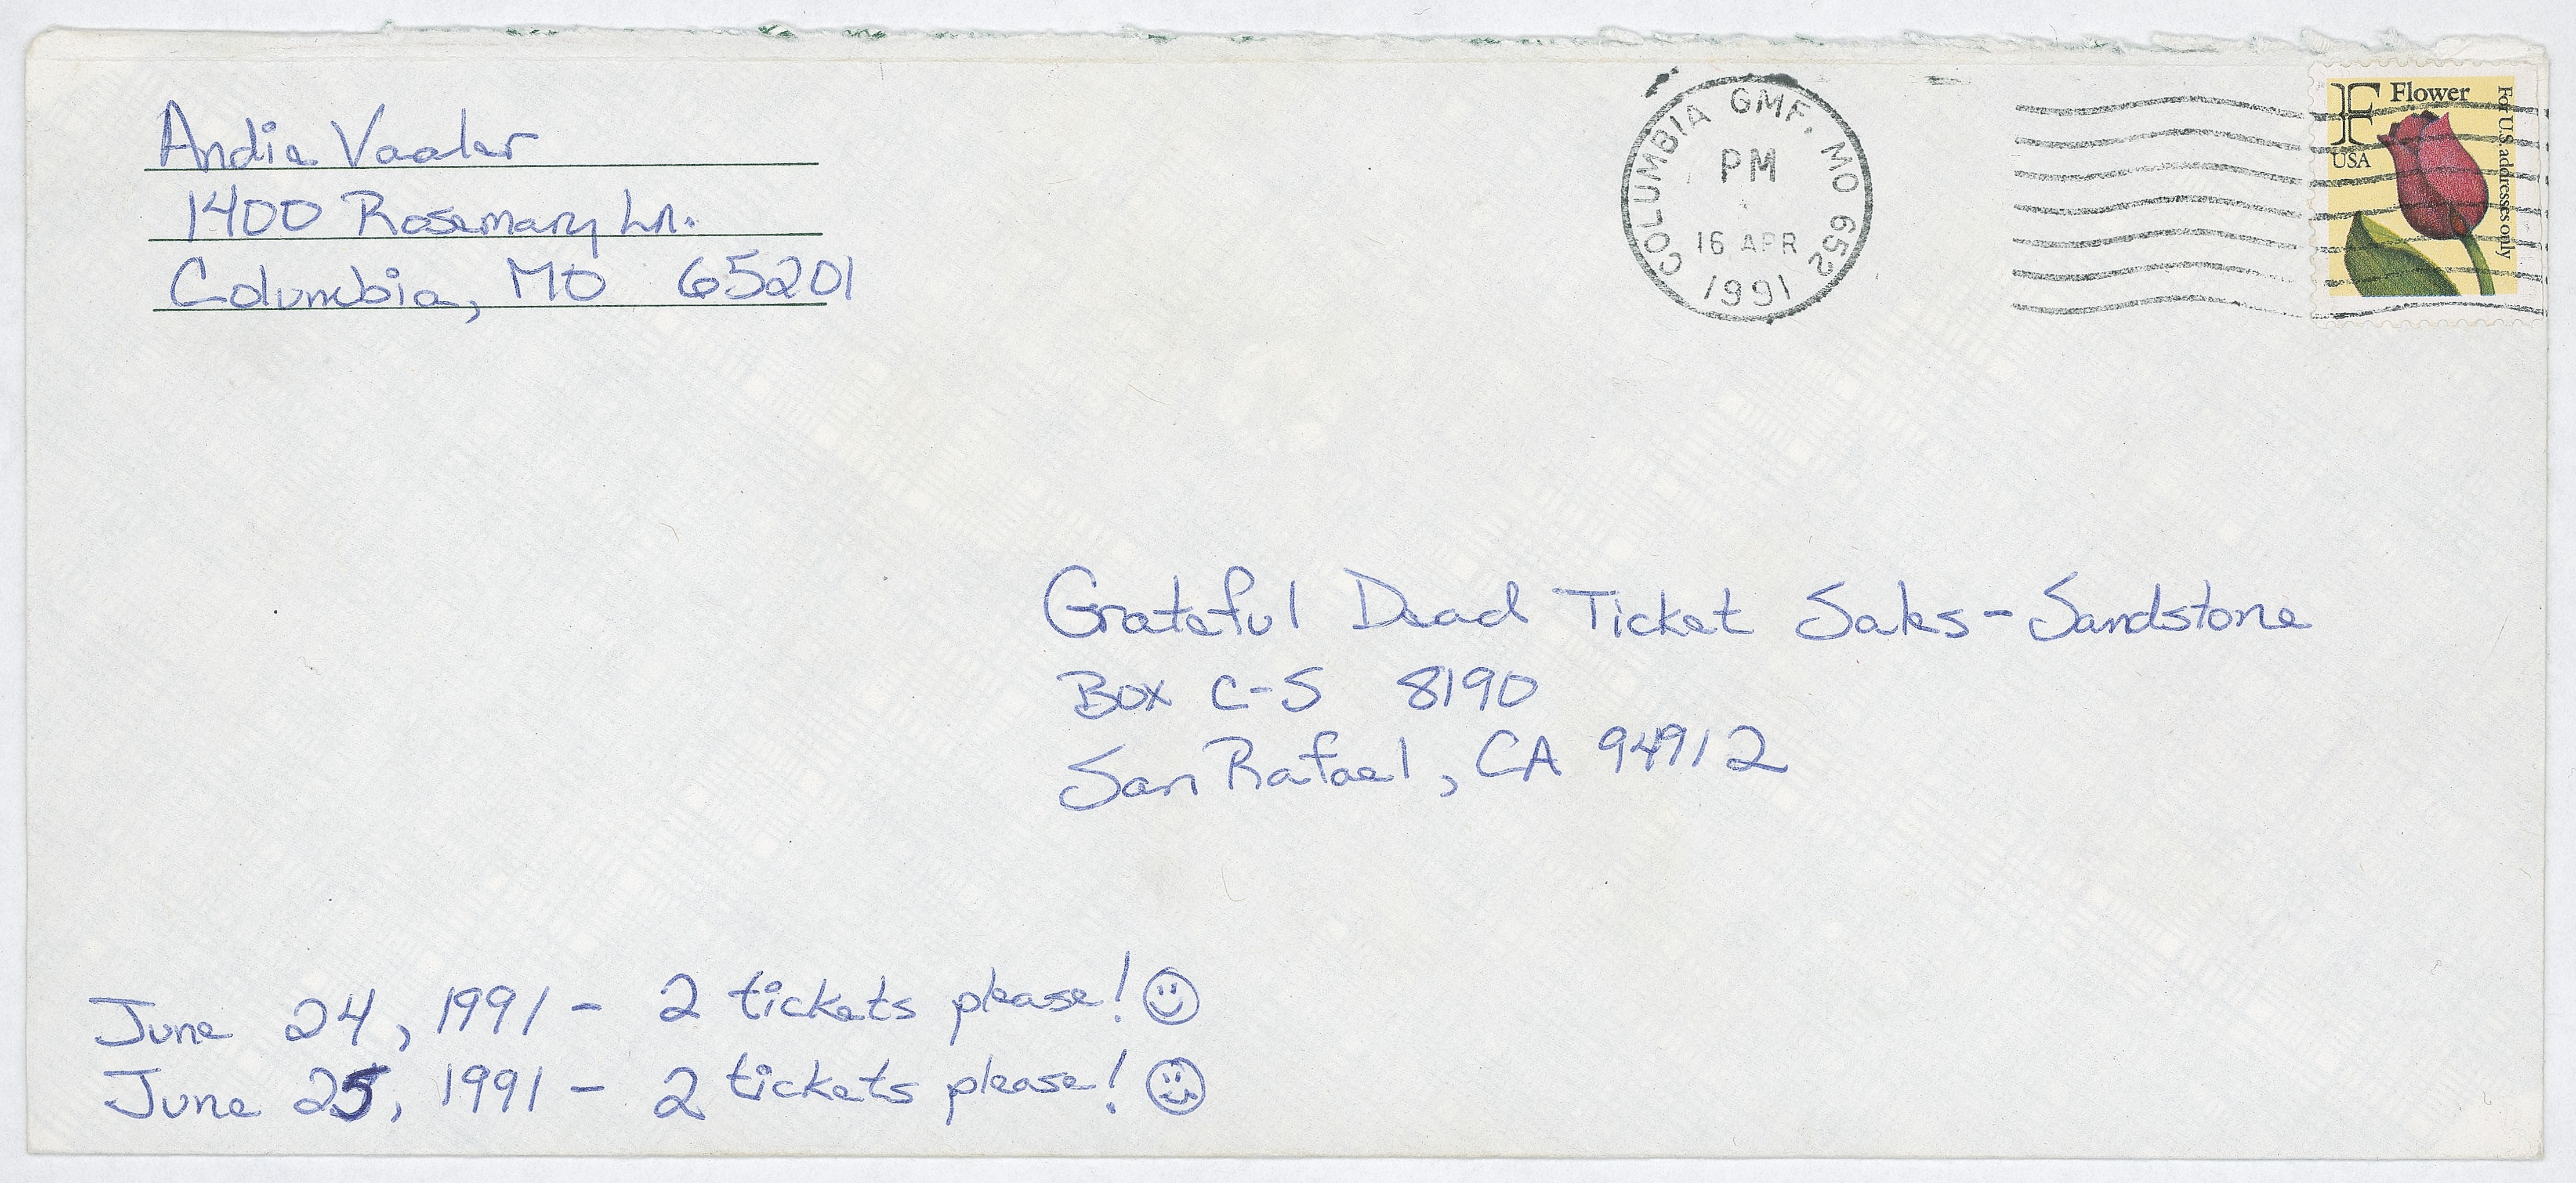 Andie Vaaler
1400 Rosemary Ln.
Columbia, MO 65201
COLUMBIA GMF, MO 652
PM
16 APR
1991
F Flower
USA
For U.S. addresses only
Grateful Dead Ticket Sales-Sandstone
Box C-S 8190
San Rafael, CA 94912
June 24, 1991 - 2 tickets please! ☺
June 25, 1991 - 2 tickets please! ☺